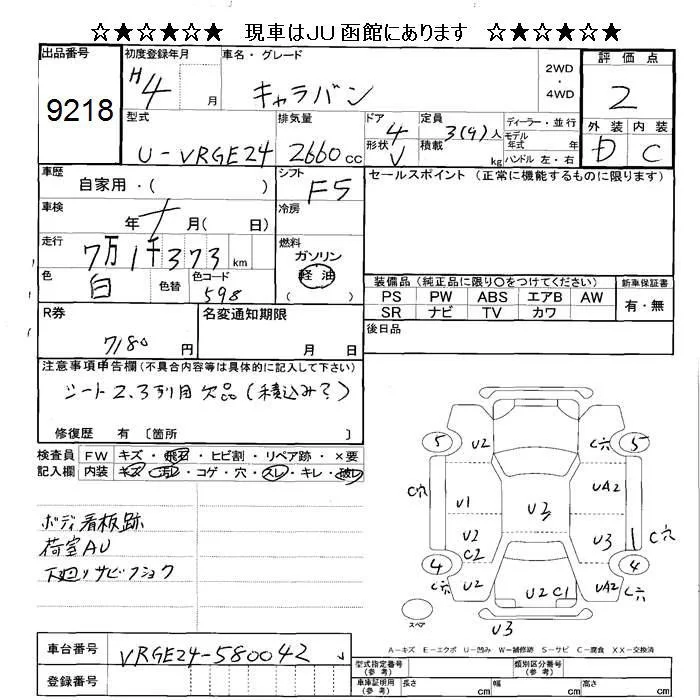 ☆★☆★☆★ 現車はJU函館にあります ☆★☆★☆★
出品番号 初度登録年月 車名・グレード 評価点
9218 H4 月 キャラバン 2WD・4WD 2
型式 排気量 ドア 定員 ディーラー・並行 外装 内装
U-VRGE24 2660cc 4 3(9)人 モデル年式 年 D C
形状 V 積載 kg ハンドル 左・右
車歴 シフト セールスポイント (正常に機能するものに限ります)
自家用・( ) F5
車検 冷房
年 月( 日)
走行 燃料
7万1千373km ガソリン
色 色替 色コード 軽油
白 598 ( )
装備品(純正品に限り○をつけてください) 新車保証書
PS PW ABS エアB AW 有・無
SR ナビ TV カワ
R券 名変通知期限 後日品
7180円 月 日
注意事項申告欄(不具合内容等は具体的に記入して下さい)
シート2.3列目欠品(積込み?)
修復歴 有 〔箇所 〕
検査員 FW キズ・飛石・ヒビ割・リペア跡・×要
記入欄 内装 キズ・汚レ・コゲ・穴・スレ・キレ・破レ
ボディ看板跡
荷室AU
下廻りサビフショク
5 U2 C穴 5
C穴 U1 UA2
U2 C2 U3 U3 C穴
4 U2 U2 C1 UA2 C穴 4
スペア U3
A-キズ E-エクボ U-凹み W-補修跡 S-サビ C-腐食 XX-交換済
車台番号 VRGE24-580042
登録番号
型式指定番号(参考) 類別区分番号(参考)
車庫証明用(参考) 長さ cm 幅 cm 高さ cm